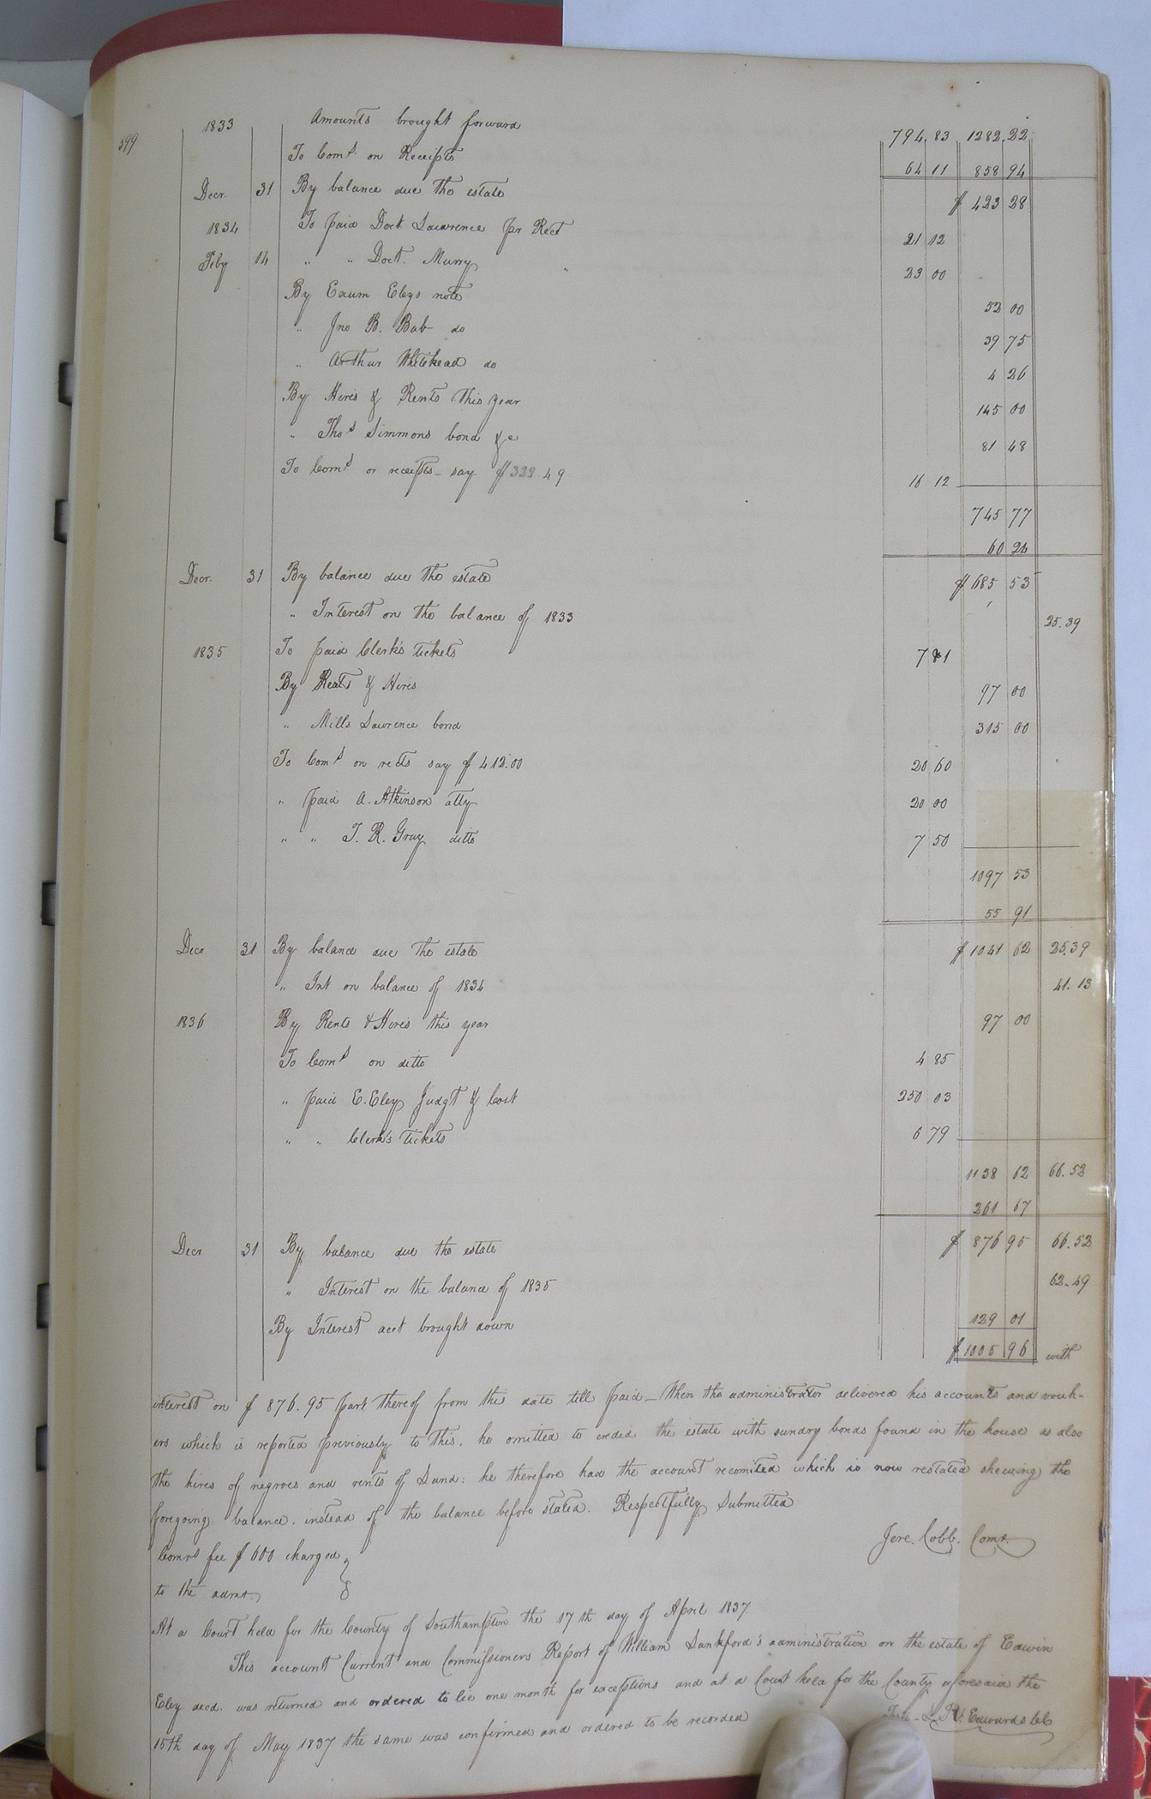 399
1833 Amounts brought forward 794.83 1282.22
To Coms on Receipts 64 11 858 94
Decr. 31 By balance due the estate $ 423 28
1834 To paid Doct Lawrence pr Rect 21 12
Feby 14 " " Doct. Murry 23 00
By Exum Eleys note 52 00
" Jno B. Bab do 39 75
" Arthur Whitehead do 4 26
By Hires & Rents this year 145 00
" Thos Simmons bond &c 81 48
To Coms on receipts - say $322.49 16 12
745 77
60 24
Decr. 31 By balance due the estate $ 685 53
" Interest on the balance of 1833 25.39
1835 To paid Clerk's tickets 7 81
By Rents & Hires 97 00
" Mills Lawrence bond 315 00
To Coms on rects say $ 412.00 20 60
" paid A. Atkinson atty 20 00
" " T. R. Gray ditto 7 50
1097 53
55 91
Decr 31 By balance due the estate $ 1041 62 25.39
" Int on balance of 1834 41.13
1836 By Rents & Hires this year 97 00
To Coms on ditto 4 85
" paid E. Eley Judgt & Cost 250 03
" " Clerk's tickets 6 79
1138 62 66.52
261 67
Decr 31 By balance due the estate $ 876 95 66.52
" Interest on the balance of 1835 62.49
By Interest acct brought down 129 01
$ 1005 96 with
interest on $ 876.95 part thereof from this date till paid - When the administrator delivered his accounts and vouch-
ers which is reported previously to this, he omitted to credid the estate with sundry bonds found in the house as also
the hires of negroes and rents of Land: he therefore had the account recomited which is now restated shewing the
foregoing balance. instead of the balance before stated. Respectfully Submitted
Jere. Cobb. Comr.
Comrs fee $ 600 charged
to the admr.
At a Court held for the County of Southampton the 17th day of April 1837
This account Current and Commissioners Report of William Lankford's administration on the estate of Edwin
Eley decd. was returned and ordered to lie one month for exceptions and at a Court held for the County aforesaid the
15th day of May 1837 the same was confirmed and ordered to be recorded
Edwards